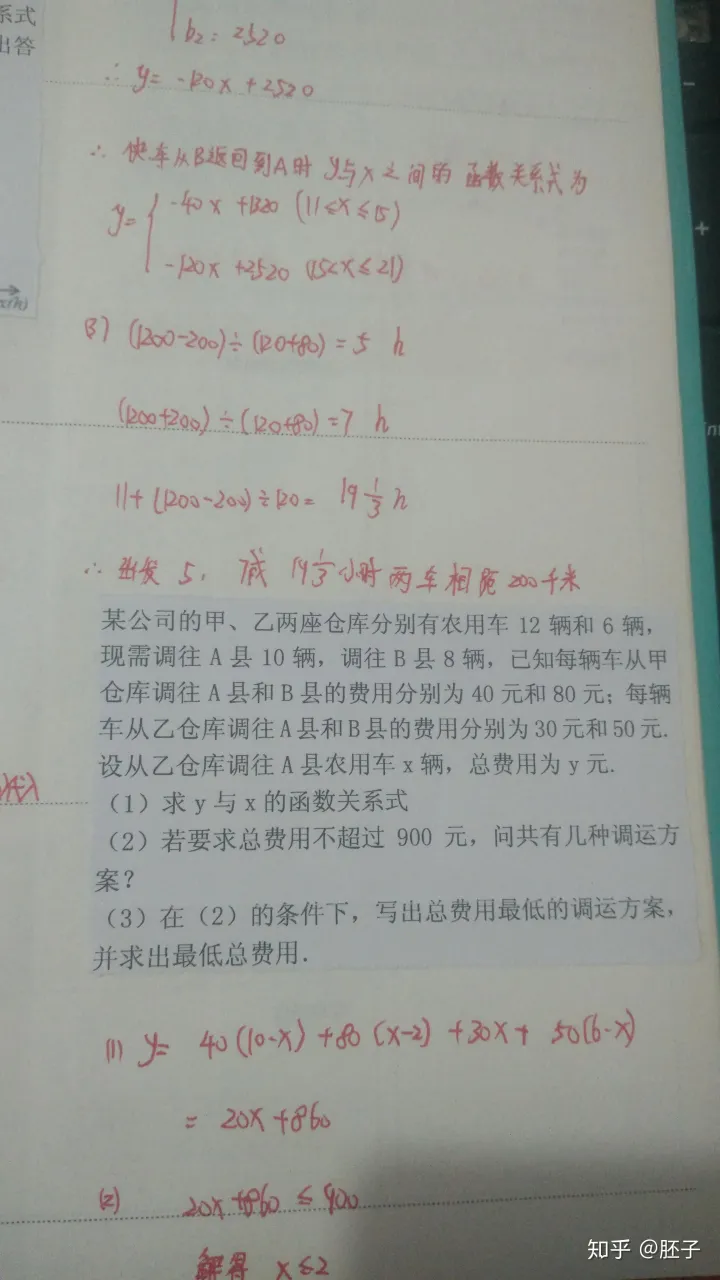 系式
出答
b₂: 2520
∴ y= -120x +2520
∴ 快车从B返回到A时 y与x之间的函数关系式为
y= { -40x +1320 (11≤x≤15)
-120x +2520 (15<x≤21)
x(h)
(3) (1200-200)÷(120+80) = 5 h
(1200+200)÷(120+80)=7 h
11+(1200-200)÷120= 19 1/3 h
∴ 出发 5, 7或 19 1/3 小时 两车相距200千米
某公司的甲、乙两座仓库分别有农用车 12 辆和 6 辆,
现需调往 A 县 10 辆，调往 B 县 8 辆，已知每辆车从甲
仓库调往 A 县和 B 县的费用分别为 40 元和 80 元；每辆
车从乙仓库调往 A 县和 B 县的费用分别为 30 元和 50 元.
设从乙仓库调往 A 县农用车 x 辆，总费用为 y 元.
（1）求 y 与 x 的函数关系式
（2）若要求总费用不超过 900 元，问共有几种调运方
案？
（3）在（2）的条件下，写出总费用最低的调运方案，
并求出最低总费用.
(1) y= 40(10-x) +80(x-2) +30x+ 50(6-x)
= 20x+860
(2) 20x+860 ≤ 900
解得 x≤2
知乎 @胚子